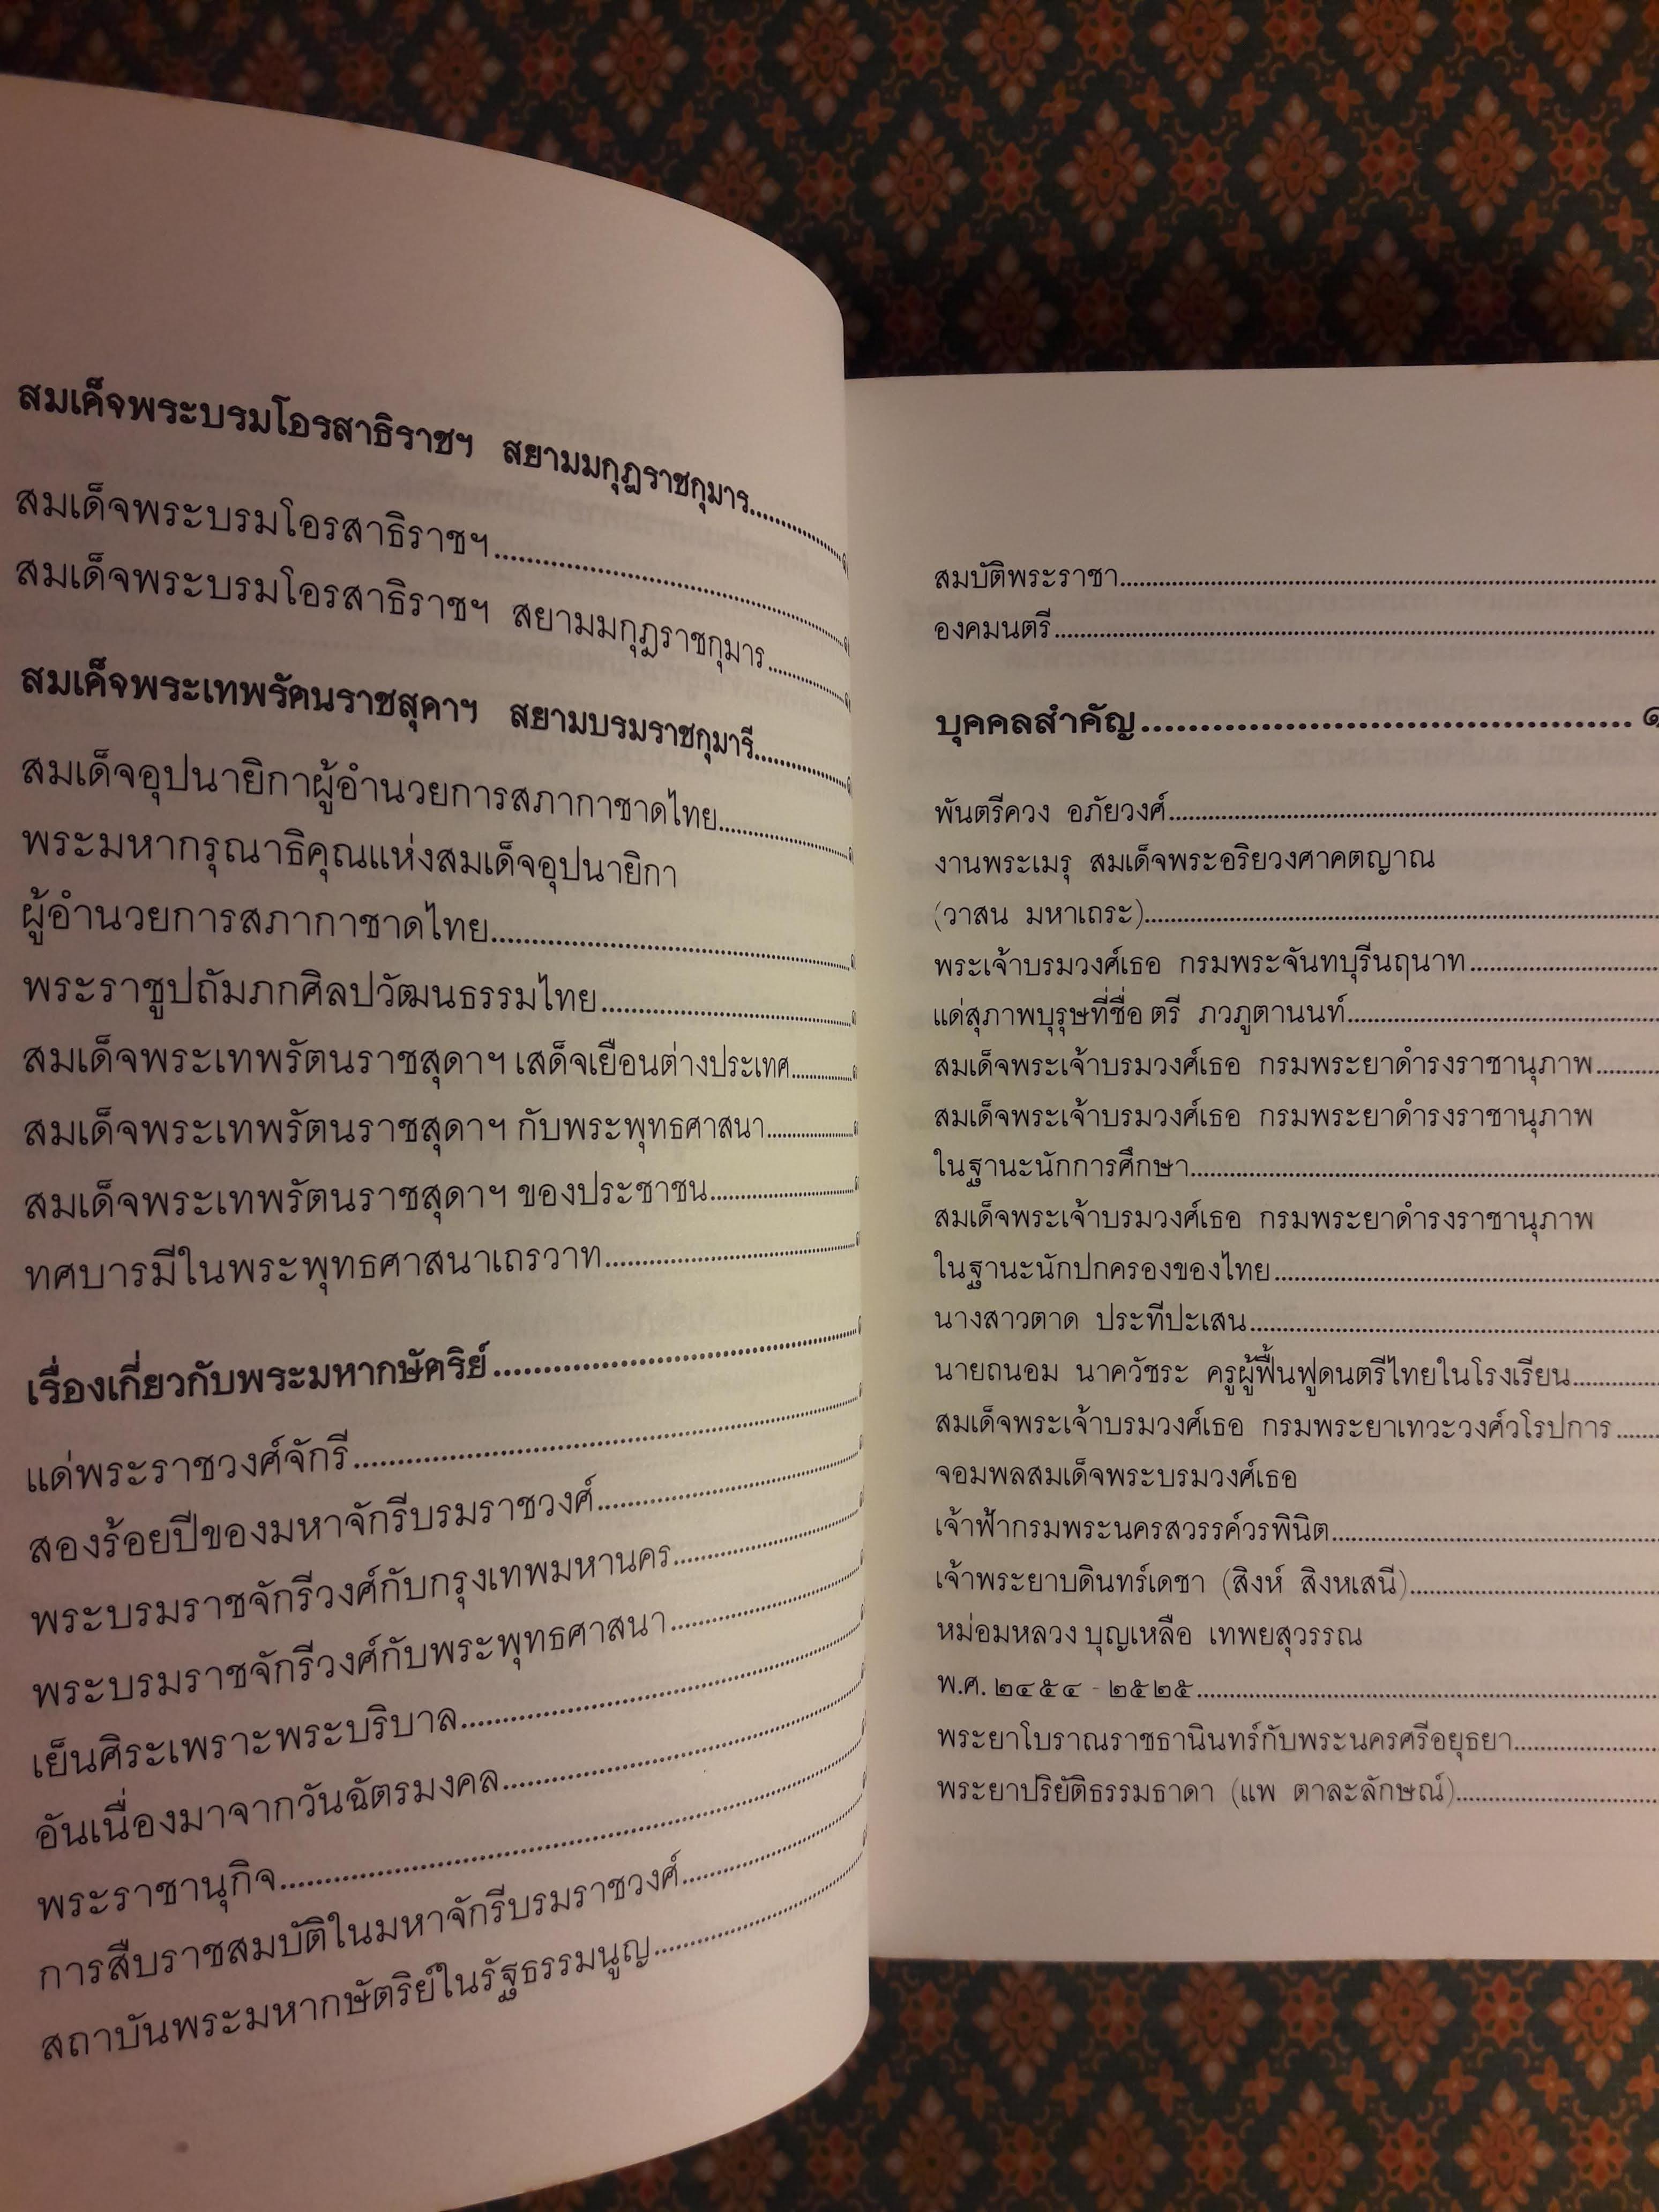 สมเด็จพระบรมโอรสาธิราชฯ สยามมกุฎราชกุมาร
สมเด็จพระบรมโอรสาธิราชฯ
สมเด็จพระบรมโอรสาธิราชฯ สยามมกุฎราชกุมาร
สมเด็จพระเทพรัตนราชสุดาฯ สยามบรมราชกุมารี
สมเด็จอุปนายิกาผู้อำนวยการสภากาชาดไทย
พระมหากรุณาธิคุณแห่งสมเด็จอุปนายิกา
ผู้อำนวยการสภากาชาดไทย
พระราชูปถัมภกศิลปวัฒนธรรมไทย
สมเด็จพระเทพรัตนราชสุดาฯ เสด็จเยือนต่างประเทศ
สมเด็จพระเทพรัตนราชสุดาฯ กับพระพุทธศาสนา
สมเด็จพระเทพรัตนราชสุดาฯ ของประชาชน
ทศบารมีในพระพุทธศาสนาเถรวาท
เรื่องเกี่ยวกับพระมหากษัตริย์
แด่พระราชวงศ์จักรี
สองร้อยปีของมหาจักรีบรมราชวงศ์
พระบรมราชจักรีวงศ์กับกรุงเทพมหานคร
พระบรมราชจักรีวงศ์กับพระพุทธศาสนา
เย็นศิระเพราะพระบริบาล
อันเนื่องมาจากวันฉัตรมงคล
พระราชานุกิจ
การสืบราชสมบัติในมหาจักรีบรมราชวงศ์
สถาบันพระมหากษัตริย์ในรัฐธรรมนูญ
สมบัติพระราชา
องคมนตรี
บุคคลสำคัญ
พันตรีควง อภัยวงศ์
งานพระเมรุ สมเด็จพระอริยวงศาคตญาณ
(วาสน มหาเถระ)
พระเจ้าบรมวงศ์เธอ กรมพระจันทบุรีนฤนาท
แด่สุภาพบุรุษที่ชื่อ ตรี ภวภูตานนท์
สมเด็จพระเจ้าบรมวงศ์เธอ กรมพระยาดำรงราชานุภาพ
สมเด็จพระเจ้าบรมวงศ์เธอ กรมพระยาดำรงราชานุภาพ
ในฐานะนักการศึกษา
สมเด็จพระเจ้าบรมวงศ์เธอ กรมพระยาดำรงราชานุภาพ
ในฐานะนักปกครองของไทย
นางสาวตาด ประทีปะเสน
นายถนอม นาควัชระ ครูผู้ฟื้นฟูดนตรีไทยในโรงเรียน
สมเด็จพระเจ้าบรมวงศ์เธอ กรมพระยาเทวะวงศ์วโรปการ
จอมพลสมเด็จพระบรมวงศ์เธอ
เจ้าฟ้ากรมพระนครสวรรค์วรพินิต
เจ้าพระยาบดินทร์เดชา (สิงห์ สิงหเสนี)
หม่อมหลวง บุญเหลือ เทพยสุวรรณ
พ.ศ. ๒๔๕๔ - ๒๕๒๕
พระยาโบราณราชธานินทร์กับพระนครศรีอยุธยา
พระยาปริยัติธรรมธาดา (แพ ตาละลักษณ์)